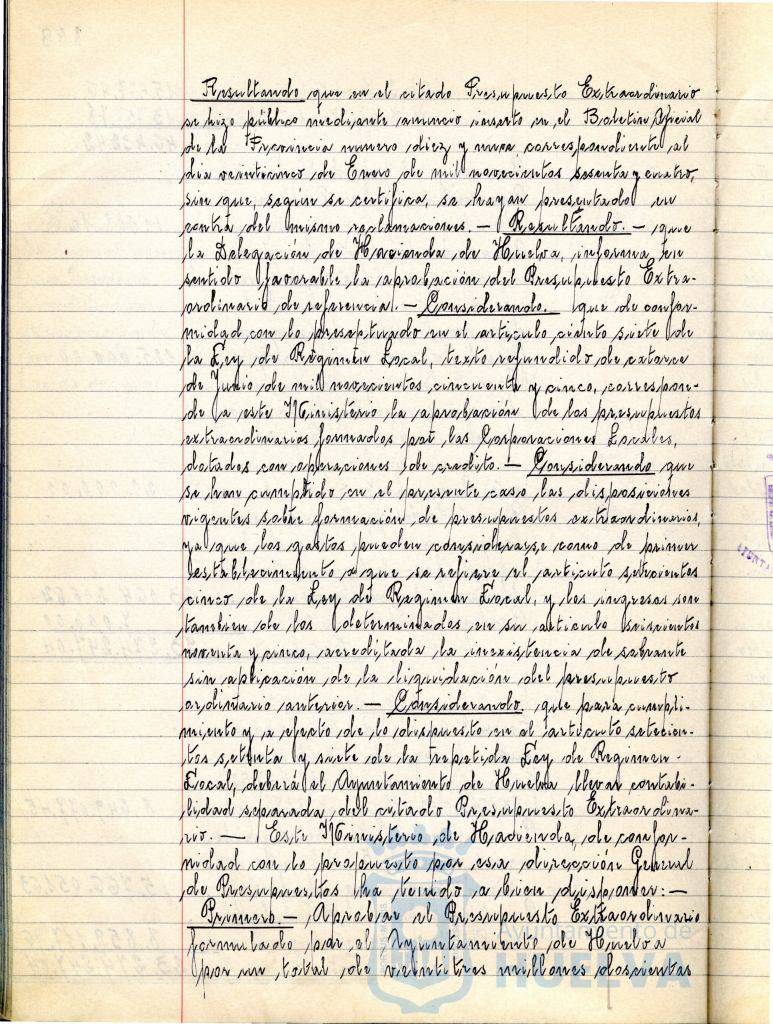 Resultando que en el citado Presupuesto Extraordinario
se hizo público mediante anuncio inserto en el Boletin Oficial
de la Provincia numero diez y nueve correspondiente al
dia veinticinco de Enero de mil novecientos sesenta y cuatro,
sin que, según se certifica, se hayan presentado en
contra del mismo reclamaciones. — Resultando. — que
la Delegación de Hacienda de Huelva, informa en
sentido favorable la aprobación del Presupuesto Extra-
ordinario de referencia. — Considerando. que de confor-
midad con lo preceptuado en el articulo ciento siete de
la Ley de Regimen Local, texto refundido de catorce
de Junio de mil novecientos cincuenta y cinco, correspon-
de a este Ministerio la aprobación de los presupuestos
extraordinarios formados por las Corporaciones Locales,
dotados con operaciones de credito. — Considerando que
se han cumplido en el presente caso las disposiciones
vigentes sobre formación de presupuestos extraordinarios,
ya que los gastos pueden considerarse como de primer
establecimiento a que se refiere el articulo seiscientos
cinco de la Ley de Regimen Local, y los ingresos son
tambien de los determinados en su articulo seiscientos
noventa y cinco, acreditada la inexistencia de sobrante
sin aplicación de la liquidación del presupuesto
ordinario anterior. — Considerando. que para cumpli-
miento y a efecto de lo dispuesto en el articulo setecien-
tos setenta y siete de la repetida Ley de Regimen
Local, deberá el Ayuntamiento de Huelva llevar contabi-
lidad separada del citado Presupuesto Extraordina-
rio. — Este Ministerio de Hacienda, de confor-
midad con lo propuesto por esa dirección General
de Presupuestos ha tenido a bien disponer: —
Primero. — Aprobar el Presupuesto Extraordinario
formulado por el Ayuntamiento de Huelva
por un total de veintitres millones doscientas
Ayuntamiento de
HUELVA